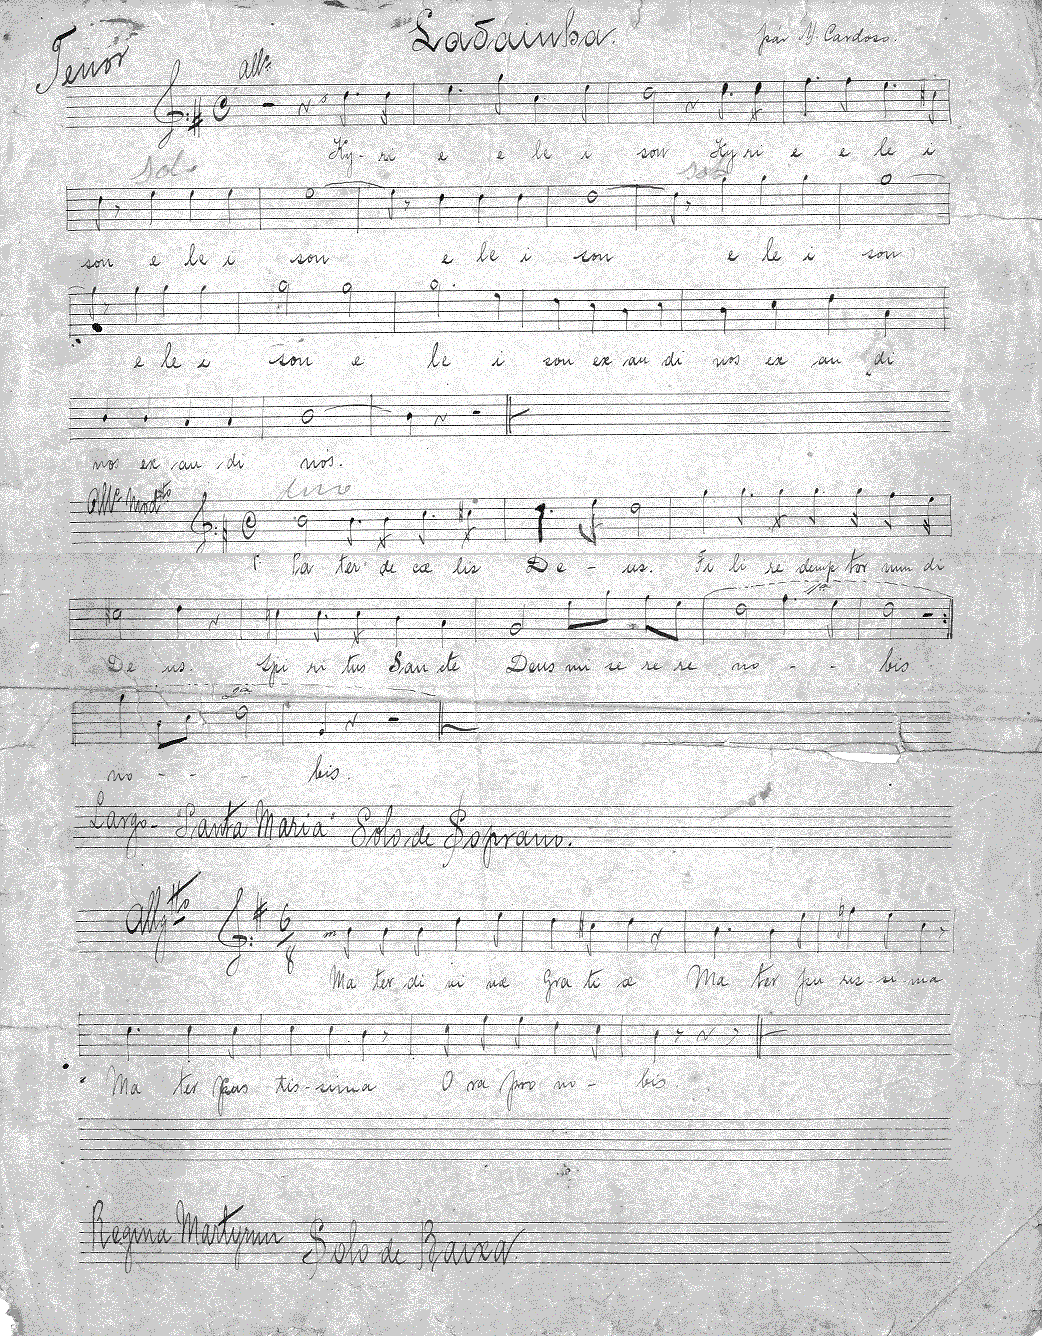 Tenor
Ladainha.
por M. Cardoso.
All.º
Ky - ri e e le i son Ky ri e e le i
sol
son e le i son e le i son e le i son
e le i son e le i son ex au di nos ex au di
nos ex au di nos.
All.º Mod.to
Pa ter de cæ lis De - us. Fi li re demp tor mun di
De us. Spi ri tus San cte Deus mi se re re no - - bis
no - - - bis.
Largo - "Santa Maria" Solo de Soprano.
Alleg.tto
6/8
Ma ter di vi næ gra ti æ Ma ter pu ris - si - ma
Ma ter cas tis - sima O ra pro no - bis.
Regina Martyrum Solo de Baixa.